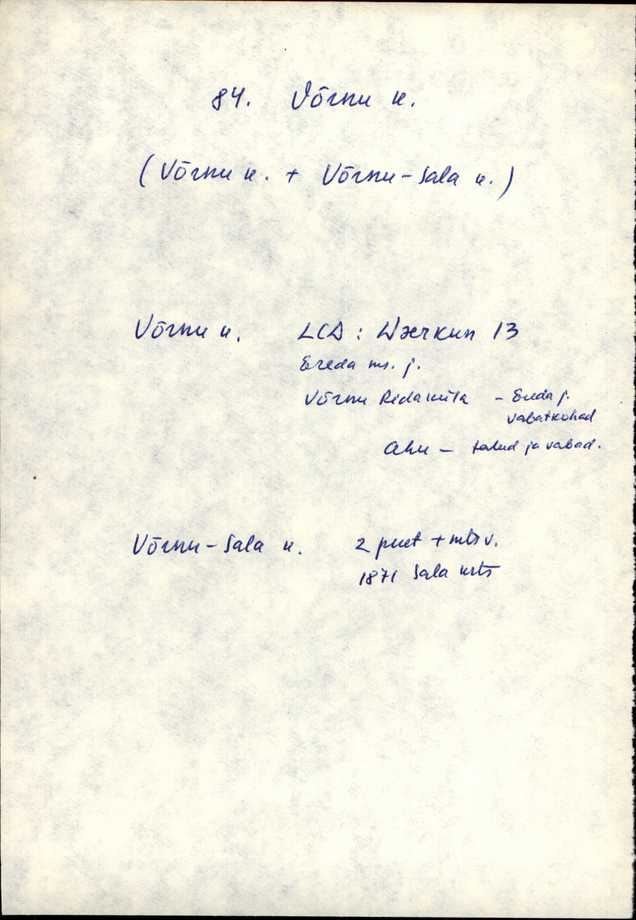 84. Võrnu k.
(Võrnu k. + Võrnu-Sala k.)
Võrnu k. LCD: Wærkun 13
Ereda ms. j.
Võrnu Ridaküla - Ereda j.
vabatkohad
Ahu - talud ja vabad.
Võrnu-Sala k. 2 puet + mts v.
1871 Sala krts